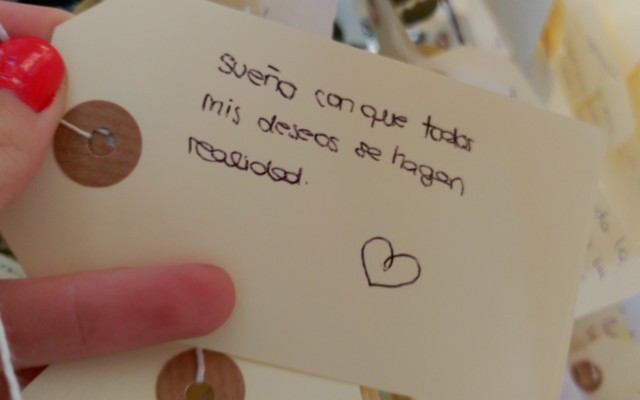 sueño con que todos
mis deseos se hagan
realidad.